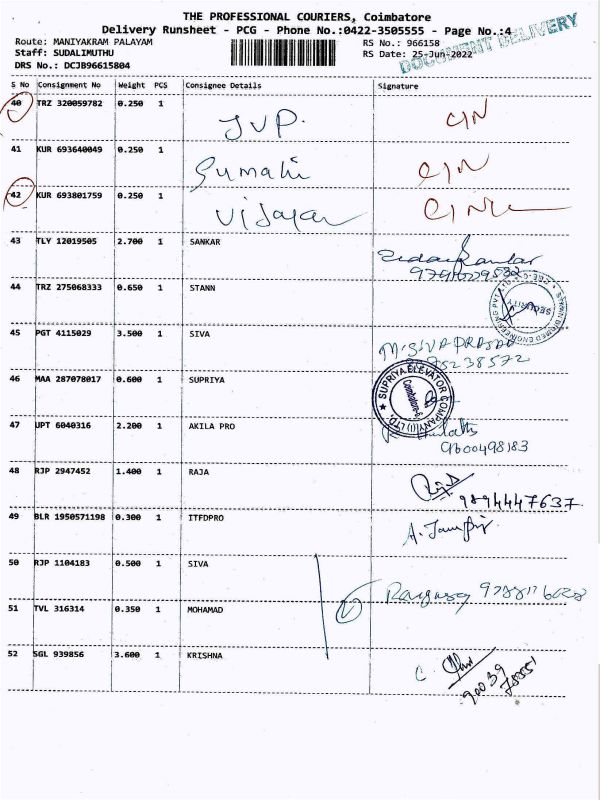 THE PROFESSIONAL COURIERS, Coimbatore
Delivery Runsheet - PCG - Phone No.:0422-3505555 - Page No.:4
Route: MANIYAKRAM PALAYAM RS No.: 966158
Staff: SUDALIMUTHU RS Date: 25-Jun-2022
DRS No.: DCJB96615804
DOCUMENT DELIVERY
S No Consignment No Weight PCS Consignee Details Signature
40 TRZ 320059782 0.250 1 JVP.
41 KUR 693640049 0.250 1
42 KUR 693801759 0.250 1
43 TLY 12019505 2.700 1 SANKAR
44 TRZ 275068333 0.650 1 STANN
SECURITY
45 PGT 4115029 3.500 1 SIVA M. SIVA PRASAD
46 MAA 287078017 0.600 1 SUPRIYA
SUPRIYA ELEVATOR COMPANY (I) LTD. Coimbatore-6
47 UPT 6040316 2.200 1 AKILA PRO
9600498183
48 RJP 2947452 1.400 1 RAJA
9894447637
49 BLR 1950571198 0.300 1 ITFDPRO
50 RJP 1104183 0.500 1 SIVA
51 TVL 316314 0.350 1 MOHAMAD
52 SGL 939856 3.600 1 KRISHNA